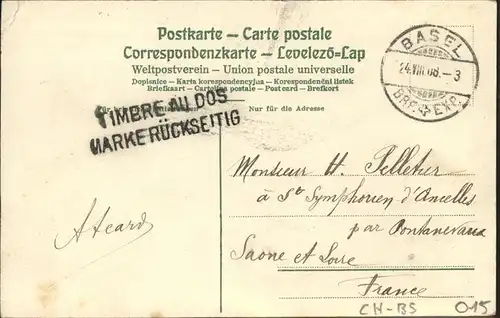 Postkarte – Carte postale
Correspondenzkarte – Levelező=Lap
Weltpostverein – Union postale universelle
Dopisnice – Karta korespondencyjna – Korespondenční lístek
Briefkaart – Cartolina postale – Postcard – Brefkort
Nur für die Adresse
TIMBRE AU DOS
MARKE RÜCKSEITIG
BASEL
24.VIII.08. – 3
BRF. EXP.
Monsieur H. Pelletier
à St Symphorien d'Ancelles
par Pontanevaux
Saone et Loire
France
CH-BS 015